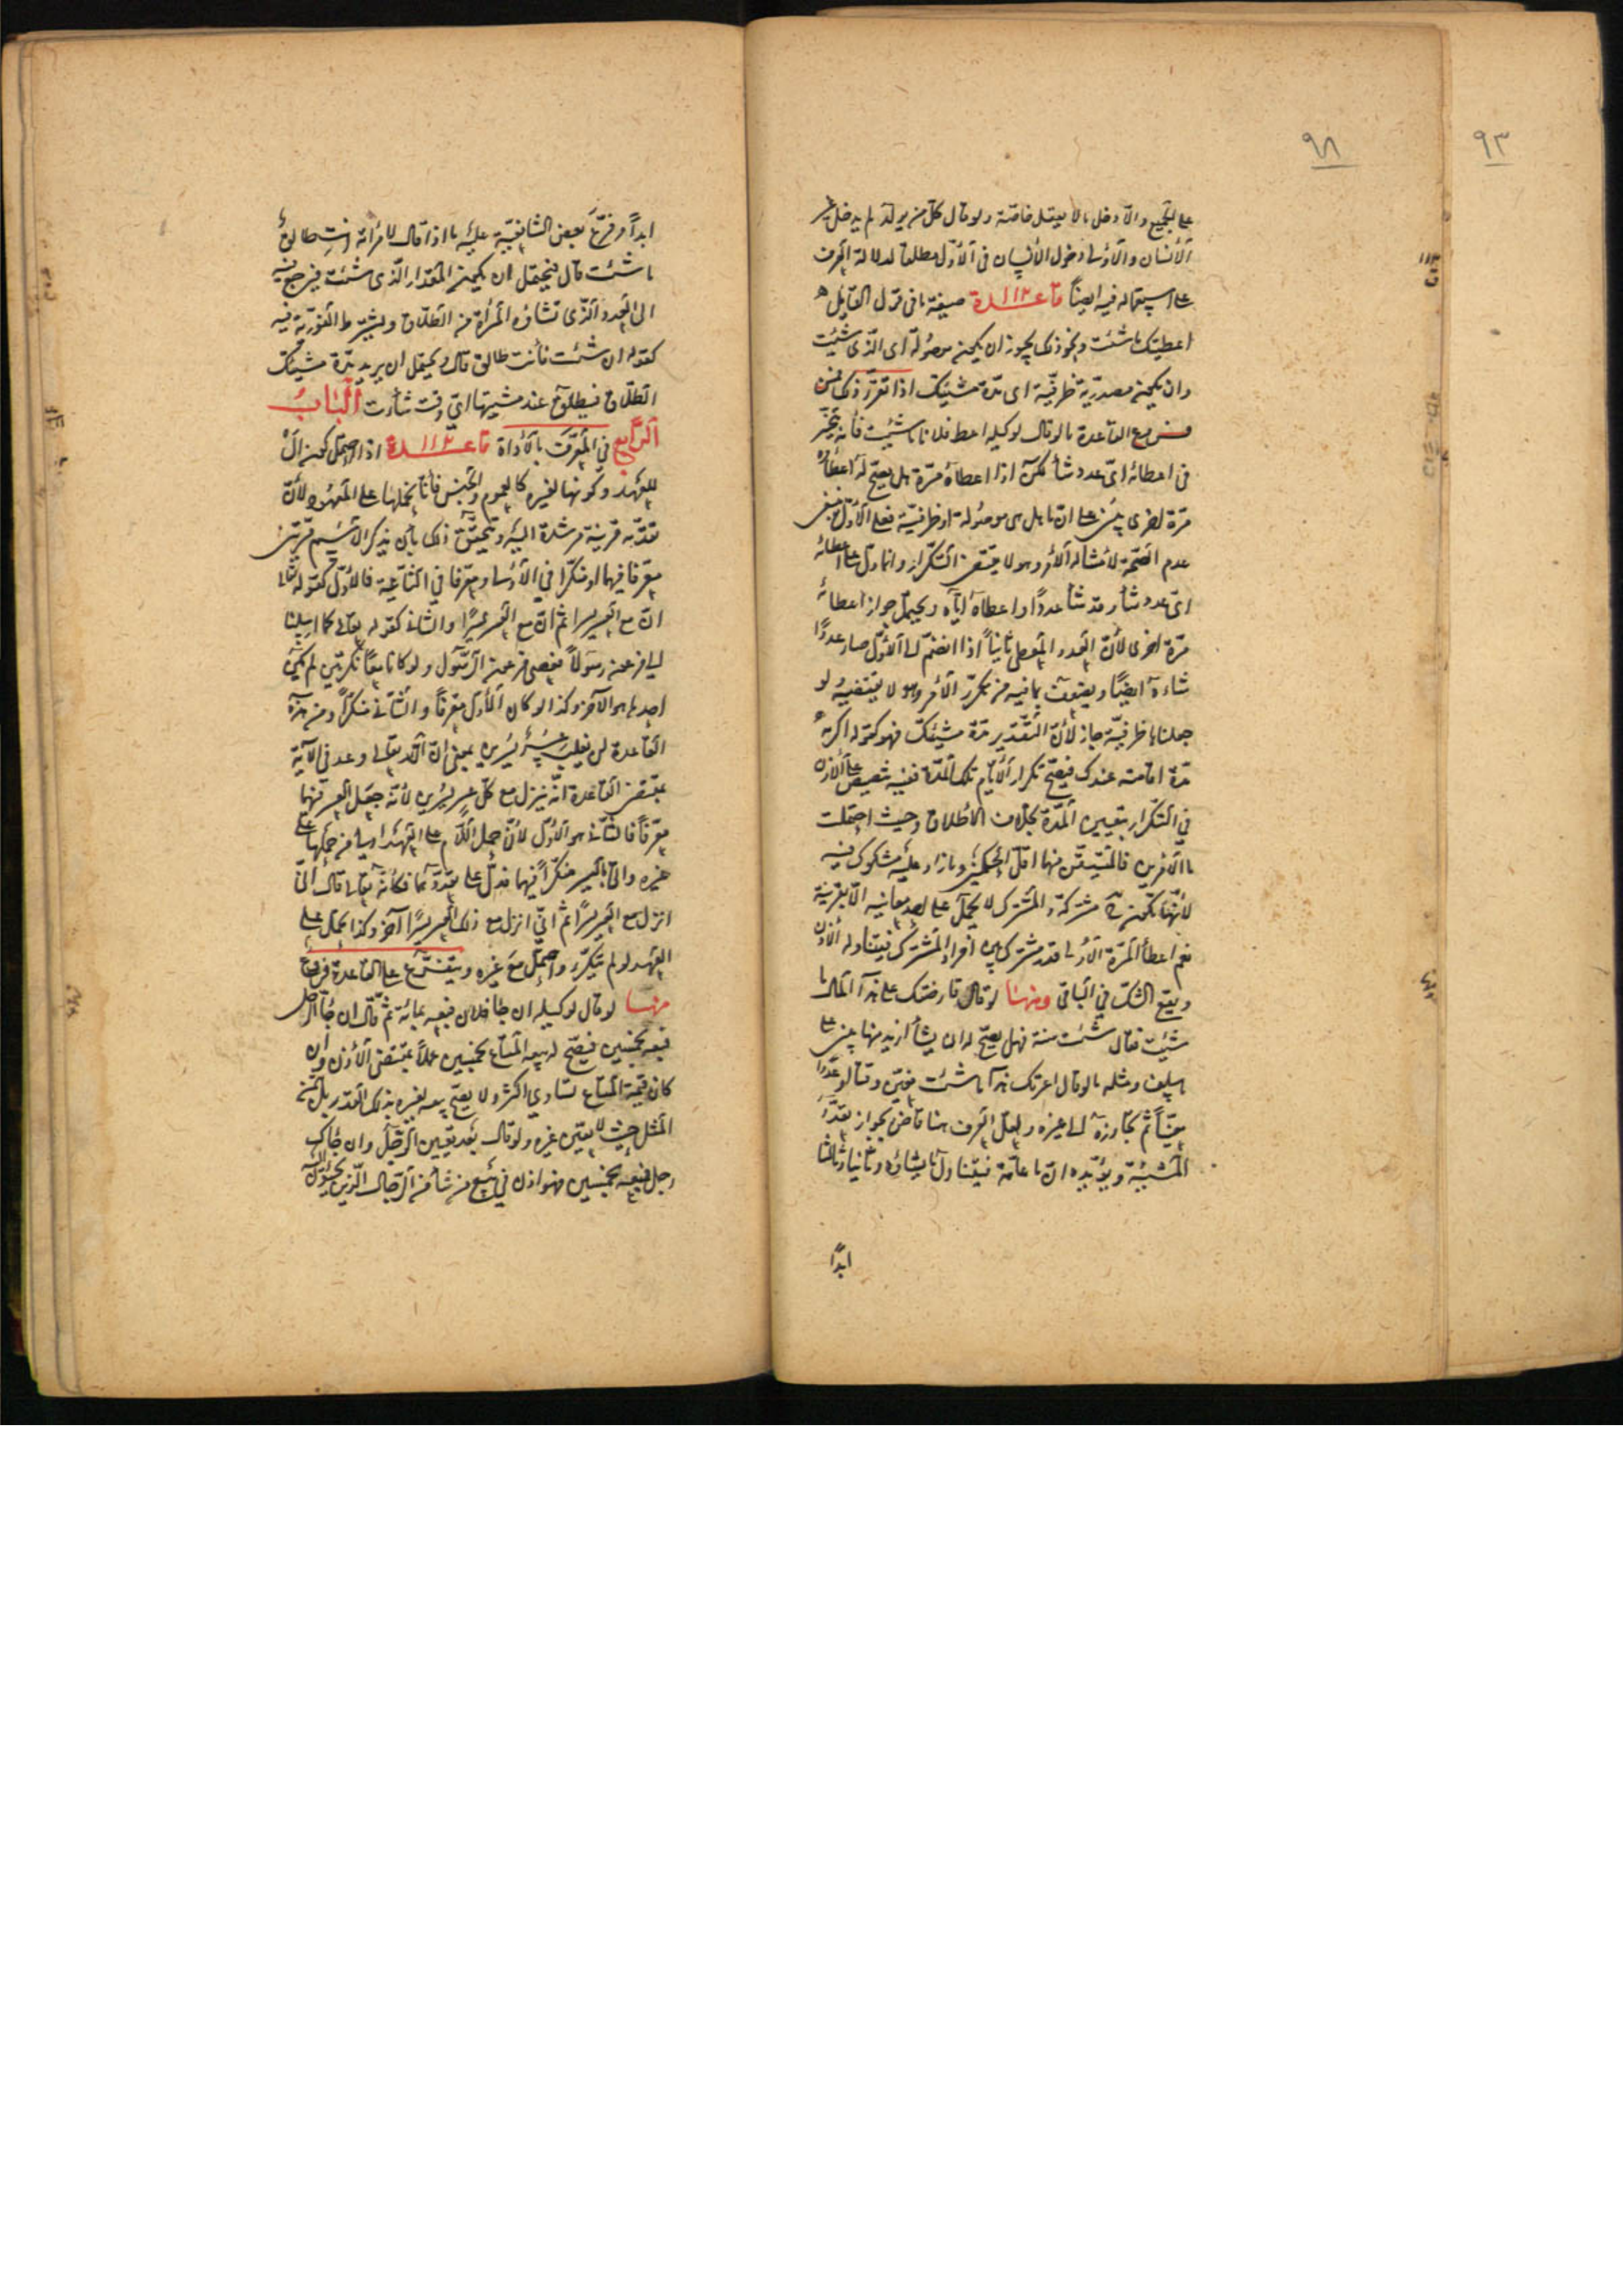 ٩٣
٩٨
على الجميع والا دخل ما لا يعقل خاصة ولو قال كل من يولد لم يدخل
الانسان والاولى دخول الانسان في الاول مطلقا لدلالة العرف
على استعماله فيه ايضا قاعدة ١١٢ صيغة ما في قول القايل
اعطيتك ما شئت ونحو ذلك يجوز ان يكون موصولة اى الذى شئت
وان يكون مصدرية ظرفية اى مدة مشيتك اذا تقرر ذلك فمن
فروع القاعدة ما لو قال لوكيله اعط فلانا ما شئت فانه يتخير
في اعطائه اى عدد شاء لكن اذا اعطاه مرة هل يصح له اعطاؤه
مرة اخرى يبنى على ان ما هل هى موصولة او ظرفية فعلى الاول ينبغى
عدم الصحة لامتثاله الامر وهو لا يقتضى التكرار وانما دل على اعطائه
اى عدد شاء وقد شاء عددا واعطاه اياه ويحتمل جواز اعطائه
مرة اخرى لان العدد المعطى ثانيا اذا انضم الى الاول صار عددا
شاءه ايضا ويضعف بما فيه من تكرر الامر وهو لا يقتضيه ولو
جعلناها ظرفية جاز لان التقدير مدة مشيتك فهو كقوله اكرمه
مدة اقامته عندك فيصح تكرار الايام تلك المدة ففيه تنصيص على الاذن
في التكرار بتعيين المدة بخلاف الاطلاق وحيث احتملت
ما الامرين فالمتيقن منها اقل الحكمين وما زاد عليه مشكوك فيه
لانها تكون مشتركة والمشترك لا يحمل على احد معانيه الا بقرينة
نعم اعطاء المرة الاولى قدر مشترك بين افراد المشترك فيتناوله الاذن
ويقع الشك في الباقى ومنها لو قال قارضتك على هذا المال ما
شئت فقال شئت سنة فهل يصح له ان يشاء ازيد منها يبنى على
ما سلف ومثله ما لو قال اعرتك هذا ما شئت فعين وقتا او عددا
معينا ثم تجاوزه الى غيره ولعل العرف هنا قاض بجواز تعدد
المشية ويؤيده ان ما عامة فيتناول ما يشاؤه وثانيا وثالثا
ابدا
ابدا وفرع بعض الشافعية عليه ما اذا قال لامراته انت طالق
ما شئت قال فيحتمل ان يكون المقدار الذى شئت فيرجع فيه
الى العدد الذى تشاؤه المرأة من الطلاق ويشترط الفورية فيه
كقوله ان شئت فانت طالق قال ويحتمل ان يريد مدة مشيتك
الطلاق فيطلق عند مشيتها اى وقت شاءت الباب
الرابع في المعرف بالاداة قاعدة ١١٣ اذا احتمل كون ال
للعهد وكونها لغيره كالعموم والجنس فانا نحملها على المعهود لان
تقدمه قرينة مرشدة اليه ويتحقق ذلك بان يذكر الاسم مرتين
معرفا فيهما او منكرا في الاولى ومعرفا في الثانية فالاول كقوله تعالى
ان مع العسر يسرا ثم ان مع العسر يسرا والثانى كقوله تعالى كما ارسلنا
الى فرعون رسولا فعصى فرعون الرسول ولو كانا معا نكرتين لم يكن
احدهما هو الآخر وكذا لو كان الاول معرفا والثانى منكرا ومن هذه
القاعدة لن يغلب عسر يسرين بمعنى ان الله تعالى وعد في الآية
بمقتضى القاعدة انه ينزل مع كل عسر يسرين لانه جعل العسر فيهما
معرفا فالثانى هو الاول لان حمل اللام على العهد اولى من حملها على
غيره واتى باليسر منكرا فيهما فدل على تعددهما فكأنه تعالى قال انى
انزل مع العسر يسرا ثم انى انزل مع ذلك العسر يسرا آخر وكذا يحمل على
العهد لو لم يتكرر واحتمل مع غيره ويتفرع على القاعدة فروع
منها لو قال لوكيله ان جاء فلان فبعه بمائة ثم قال ان جاء الرجل
فبعه بخمسين فيصح له بيعه المتاع بخمسين عملا بمقتضى الاذن وان
كان قيمة المتاع تساوى اكثر ولا يصح بيعه لغيره بذلك القدر بل بثمن
المثل حيث لا يعين غيره ولو قال بعد تعيين الرجل وان جاءك
رجل فبعه بخمسين فهو اذن في بيع من شاء من الرجال الذين